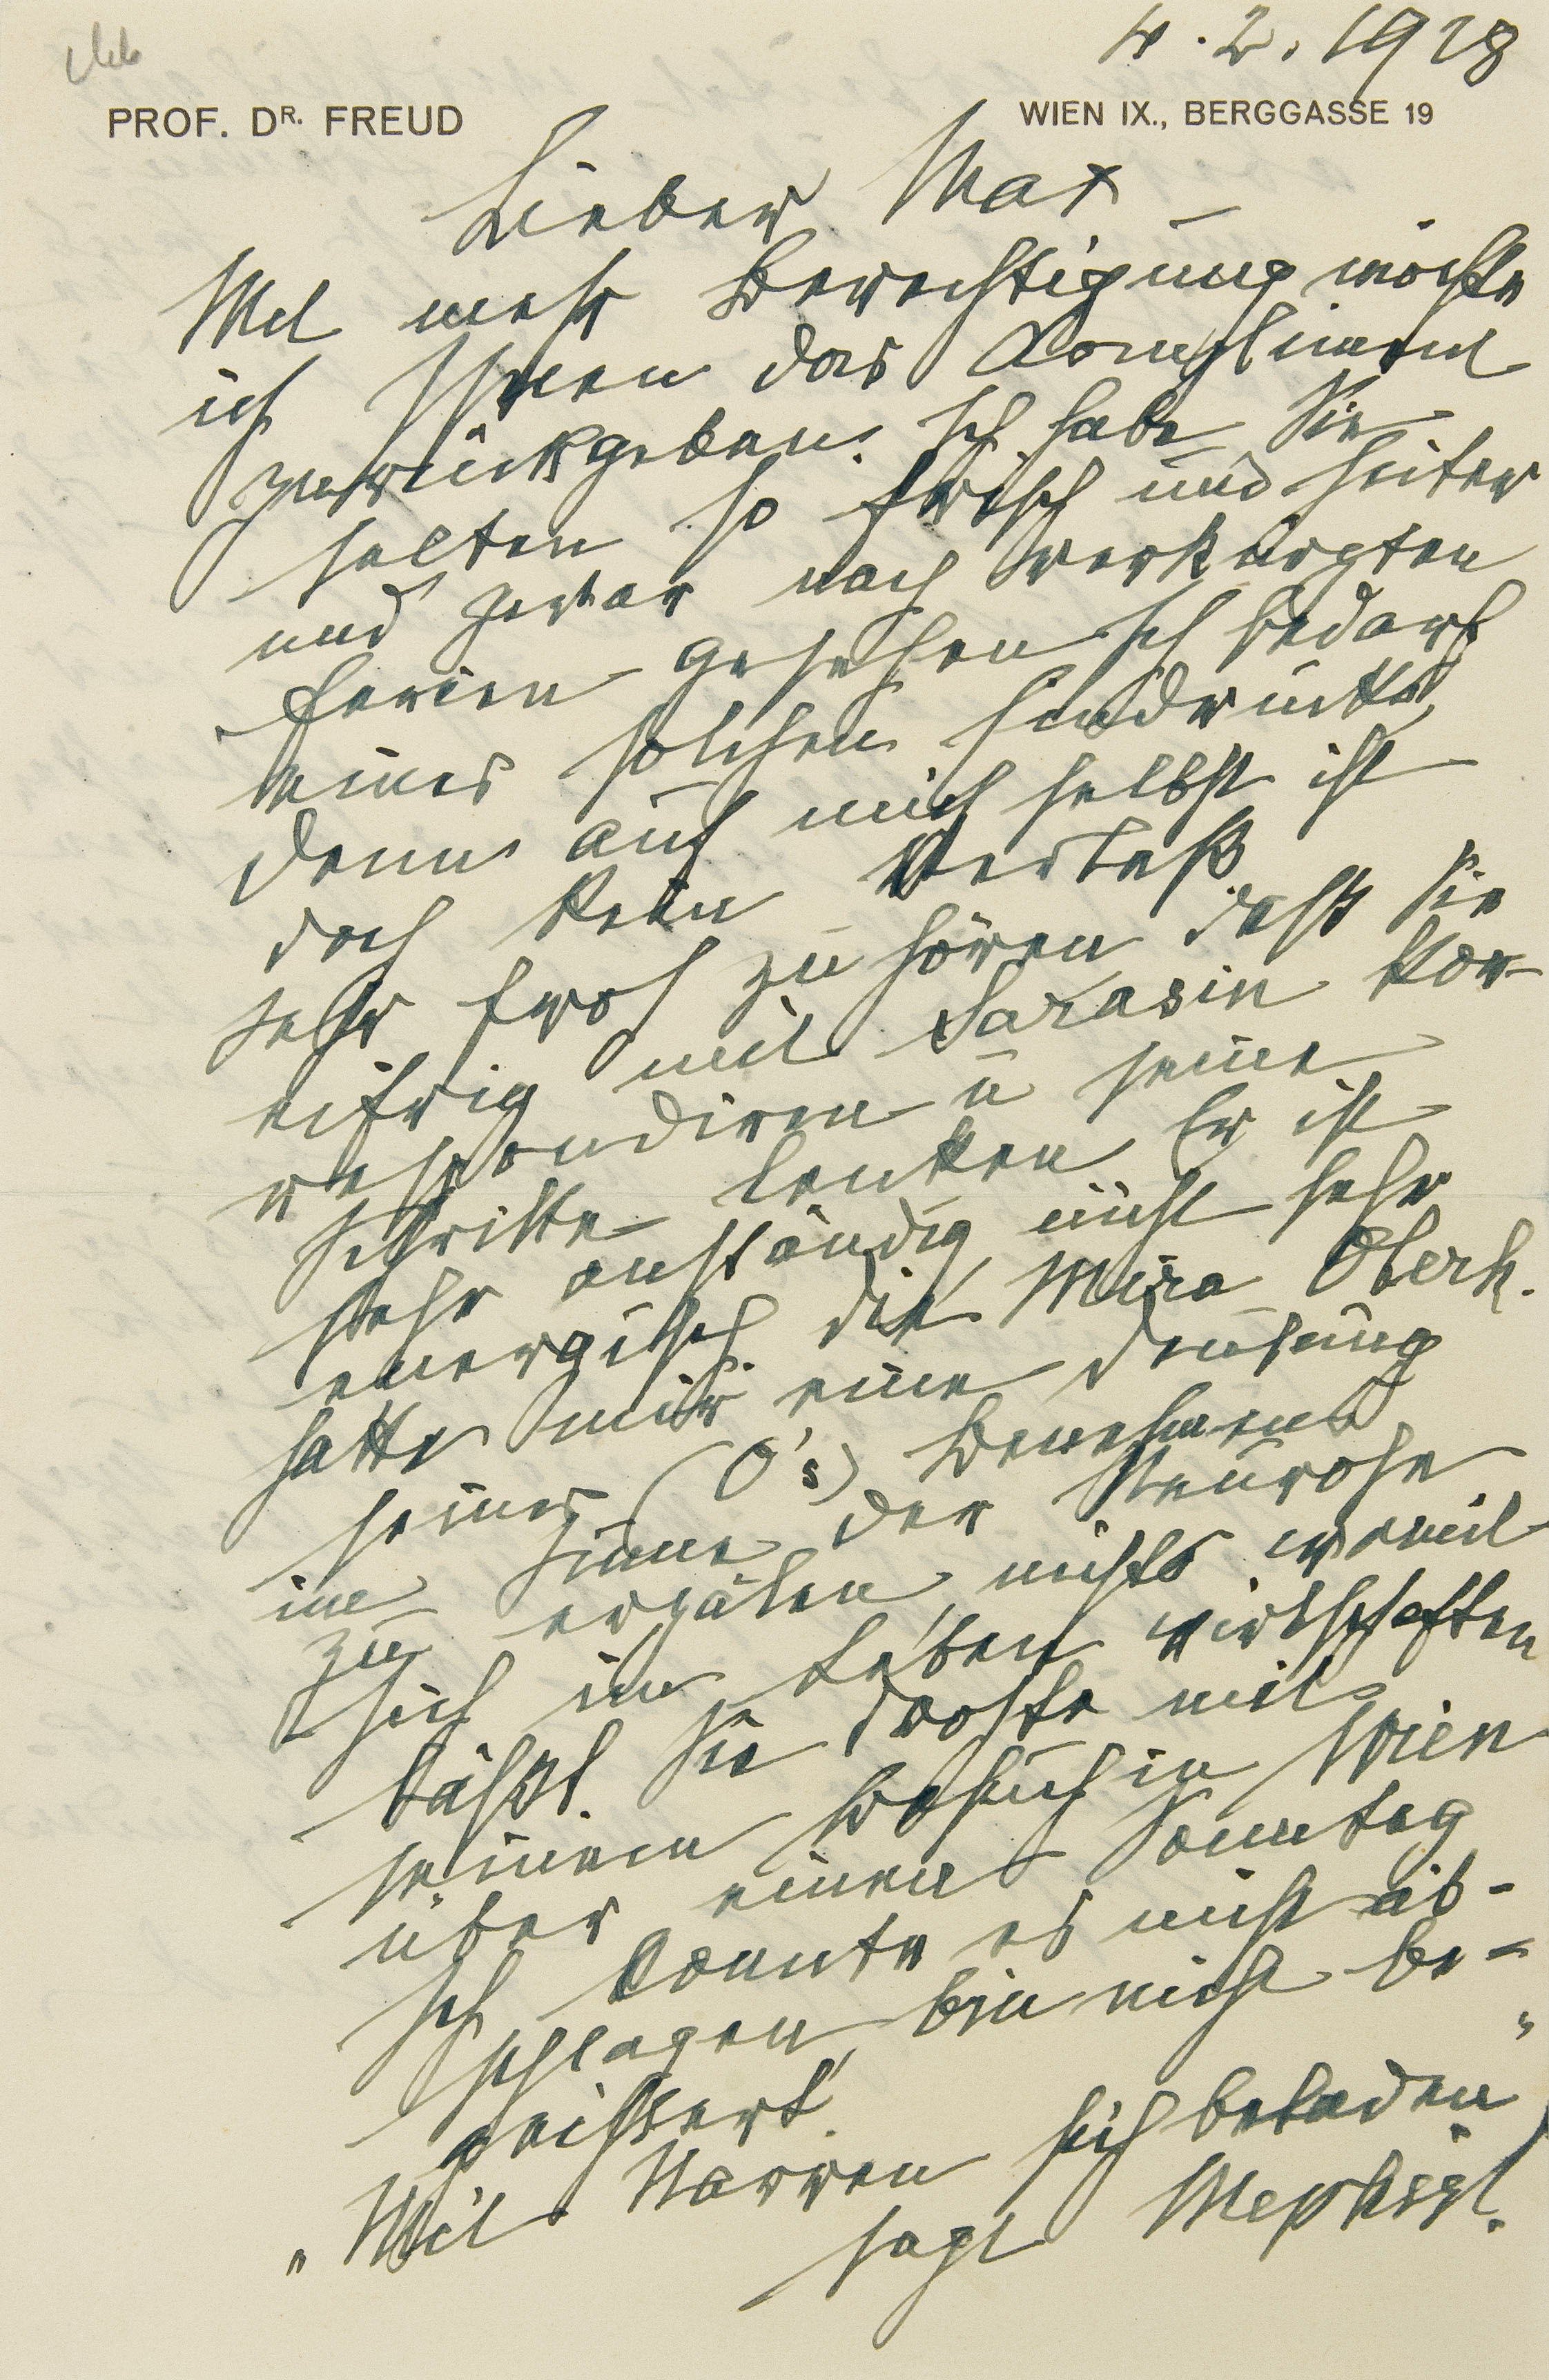 4.2.1928
PROF. DR. FREUD
WIEN IX., BERGGASSE 19
Lieber Max
Mit mehr Berechtigung möchte
ich Ihnen das Compliment
zurückgeben. Ich habe Sie
selten so frisch und heiter
und zwar nach verkürzten
Ferien gesehen Ich bedarf
eines solchen Eindrucks,
denn auf mich selbst ist
doch kein Verlaß
Sehr froh zu hören daß Sie
eifrig mit Sarasin kor-
respondiren u seine
Schritte lenken Er ist
sehr anständig nicht sehr
energisch. Die Mira Oberh.
hatte mir eine Deutung
seines (O's) Benehmens
im Sinne der Neurose
zu erzälen, nichts womit
sich im Leben wirtschaften
läßt. Sie drohte mit
seinem Besuch in Wien
über einen Sonntag
Ich konnte es nicht ab-
schlagen, bin nicht be-
geistert.
„Mit Narren sich beladen"
sagt Mephist.